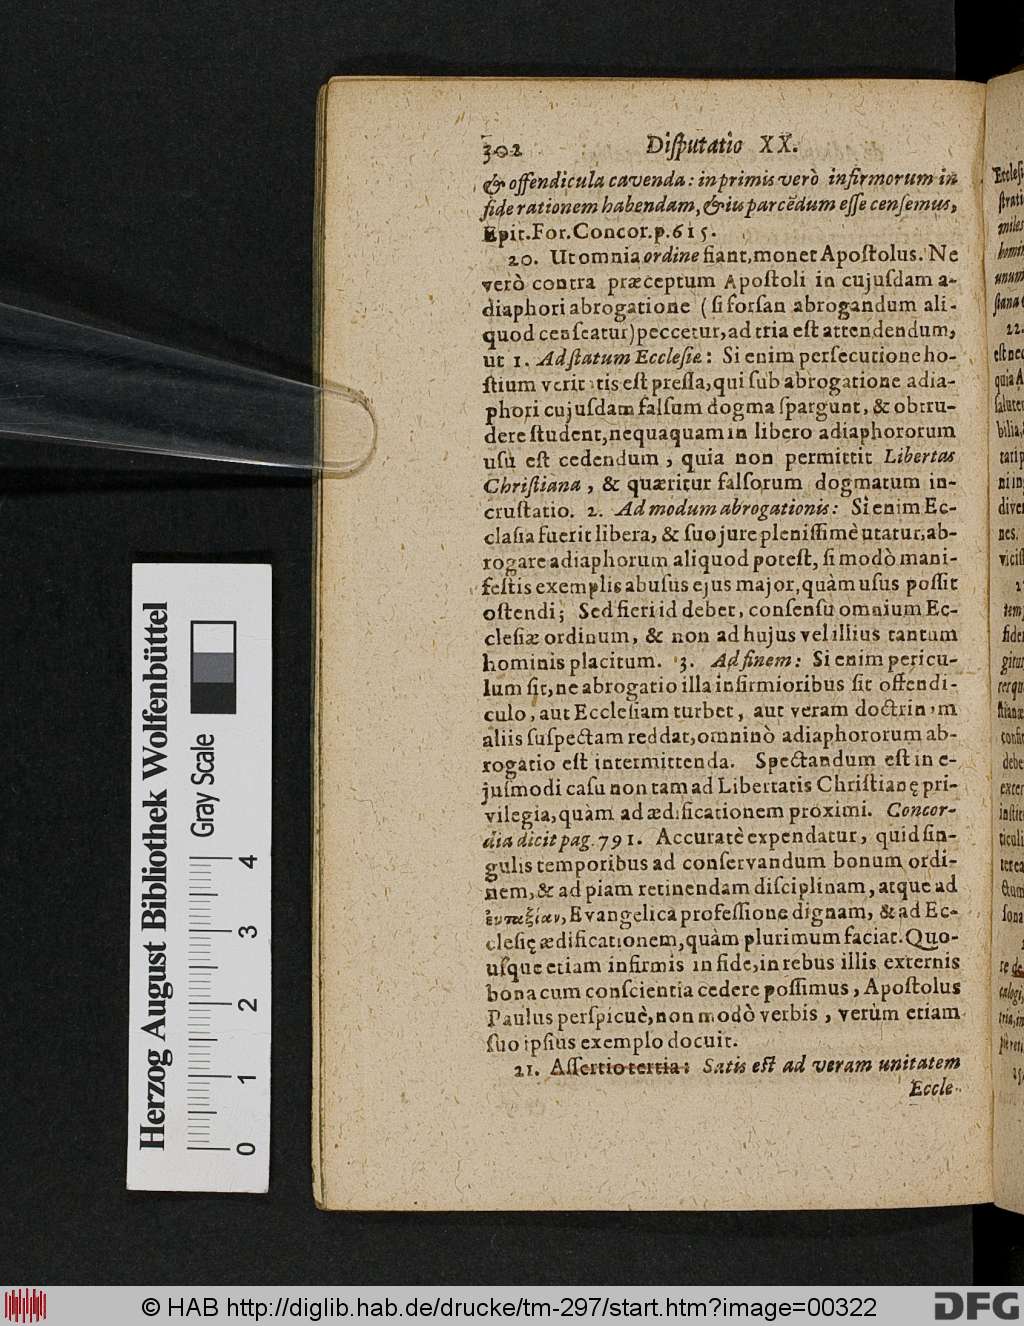 302 Diſputatio XX.
& offendicula cavenda: inprimis verò infirmorum in
fide rationem habendam, & iis parcēdum eſſe cenſemus,
Epit. For. Concor. p. 615.
20. Ut omnia ordine fiant, monet Apoſtolus. Ne
verò contra præceptum Apoſtoli in cujuſdam a-
diaphori abrogatione (ſi forſan abrogandum ali-
quod cenſeatur) peccetur, ad tria eſt attendendum,
ut 1. Ad ſtatum Eccleſiæ: Si enim perſecutione ho-
ſtium veritatis eſt preſſa, qui ſub abrogatione adia-
phori cujuſdam falſum dogma ſpargunt, & obtru-
dere ſtudent, nequaquam in libero adiaphororum
uſu eſt cedendum, quia non permittit Libertas
Chriſtiana, & quæritur falſorum dogmatum in-
cruſtatio. 2. Ad modum abrogationis: Si enim Ec-
claſia fuerit libera, & ſuo jure pleniſſimè utatur, ab-
rogare adiaphorum aliquod poteſt, ſi modò mani-
feſtis exemplis abuſus ejus major, quàm uſus poſſit
oſtendi; Sed fieri id debet, conſenſu omnium Ec-
cleſiæ ordinum, & non ad hujus vel illius tantum
hominis placitum. 3. Ad finem: Si enim pericu-
lum ſit, ne abrogatio illa infirmioribus ſit offendi-
culo, aut Eccleſiam turbet, aut veram doctrinam
aliis ſuſpectam reddat, omninò adiaphororum ab-
rogatio eſt intermittenda. Spectandum eſt in e-
juſmodi caſu non tam ad Libertatis Chriſtianę pri-
vilegia, quàm ad ædificationem proximi. Concor-
dia dicit pag. 791. Accuratè expendatur, quid ſin-
gulis temporibus ad conſervandum bonum ordi-
nem, & ad piam retinendam diſciplinam, atque ad
ἐυταξίαν, Evangelica profeſſione dignam, & ad Ec-
cleſię ædificationem, quàm plurimum faciat. Quo-
uſque etiam infirmis in fide, in rebus illis externis
bona cum conſcientia cedere poſſimus, Apoſtolus
Paulus perſpicuè, non modò verbis, verùm etiam
ſuo ipſius exemplo docuit.
21. Aſſertio tertia: Satis eſt ad veram unitatem
Eccle-
Herzog August Bibliothek Wolfenbüttel
Gray Scale
0 1 2 3 4
© HAB http://diglib.hab.de/drucke/tm-297/start.htm?image=00322
DFG